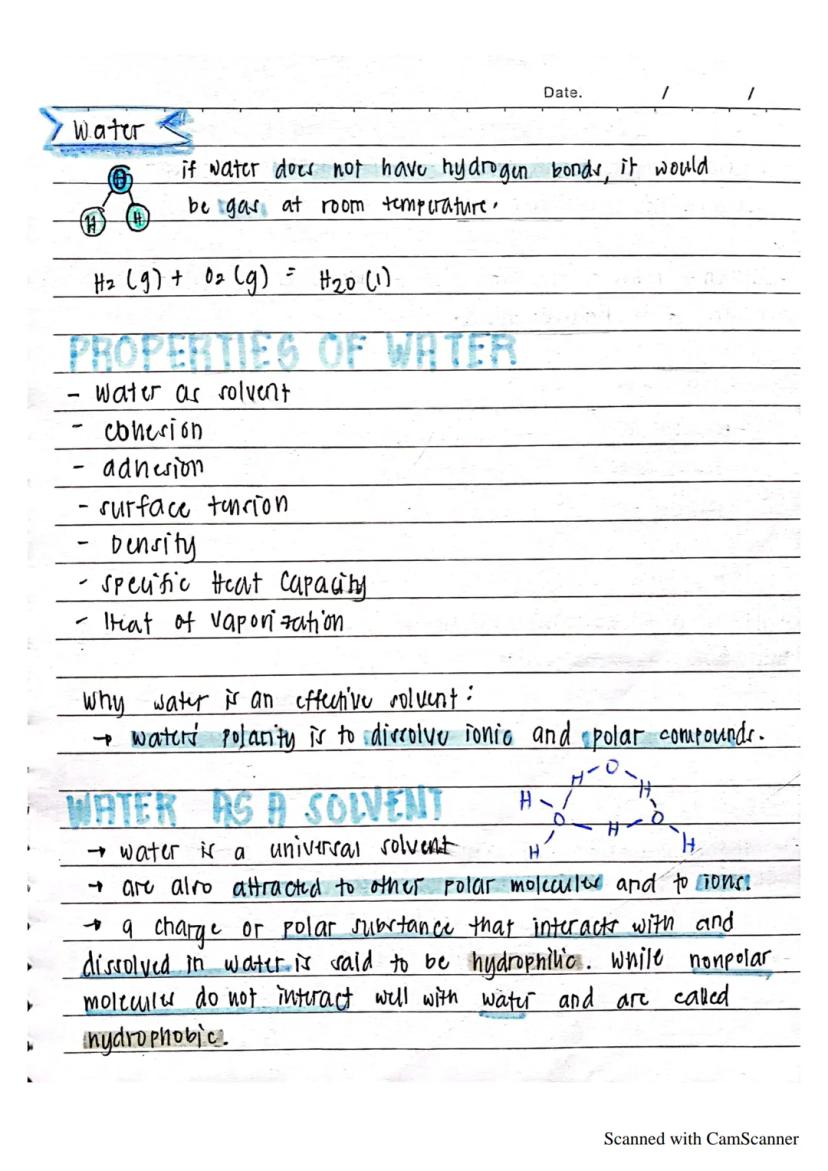 Date. / /
Water
if water does not have hydrogen bonds, it would
be gas at room temperature.
O
H H
H2 (g) + O2 (g) = H2O (l)
PROPERTIES OF WATER
- water as solvent
- cohesion
- adhesion
- surface tension
- Density
- specific Heat Capacity
- Heat of vaporization
Why water is an effective solvent:
→ water's polarity is to dissolve ionic and polar compounds.
WATER AS A SOLVENT
H O H
H O H O H
H
→ water is a universal solvent
→ are also attracted to other polar molecules and to ions.
→ a charge or polar substance that interacts with and
dissolved in water is said to be hydrophilic. While nonpolar
molecules do not interact well with water and are called
hydrophobic.
Scanned with CamScanner